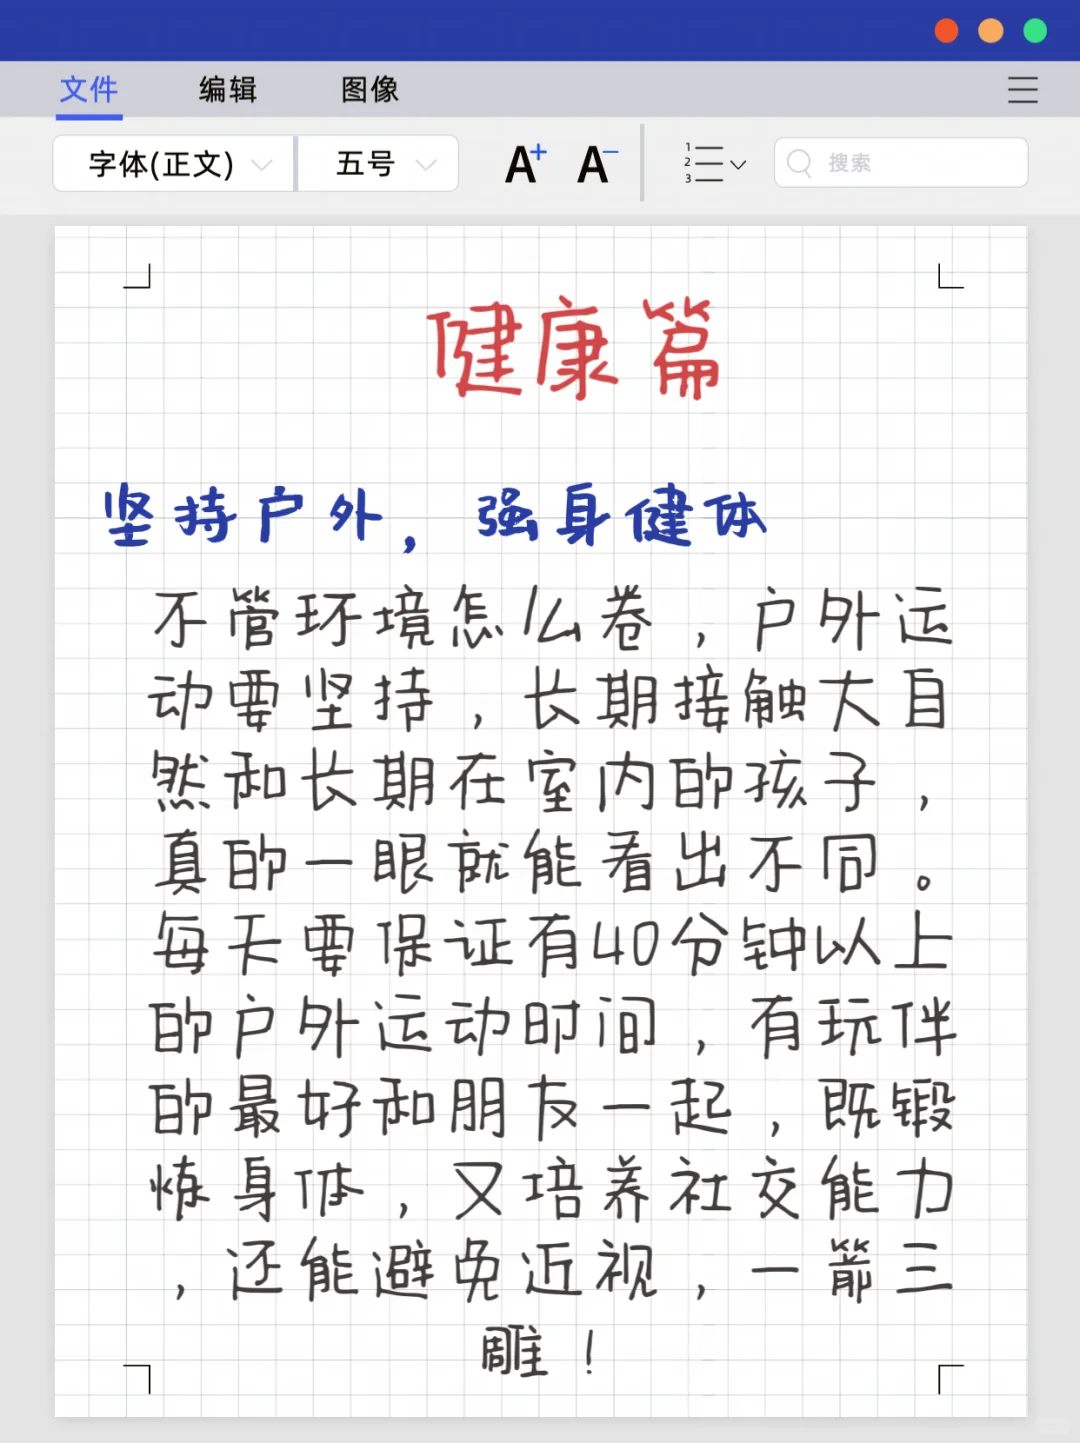 文件 编辑 图像
字体(正文) 五号 A+ A− 1 2 3 搜索
健康篇
坚持户外，强身健体
不管环境怎么卷，户外运
动要坚持，长期接触大自
然和长期在室内的孩子，
真的一眼就能看出不同。
每天要保证有40分钟以上
的户外运动时间，有玩伴
的最好和朋友一起，既锻
炼身体，又培养社交能力
，还能避免近视，一箭三
雕！